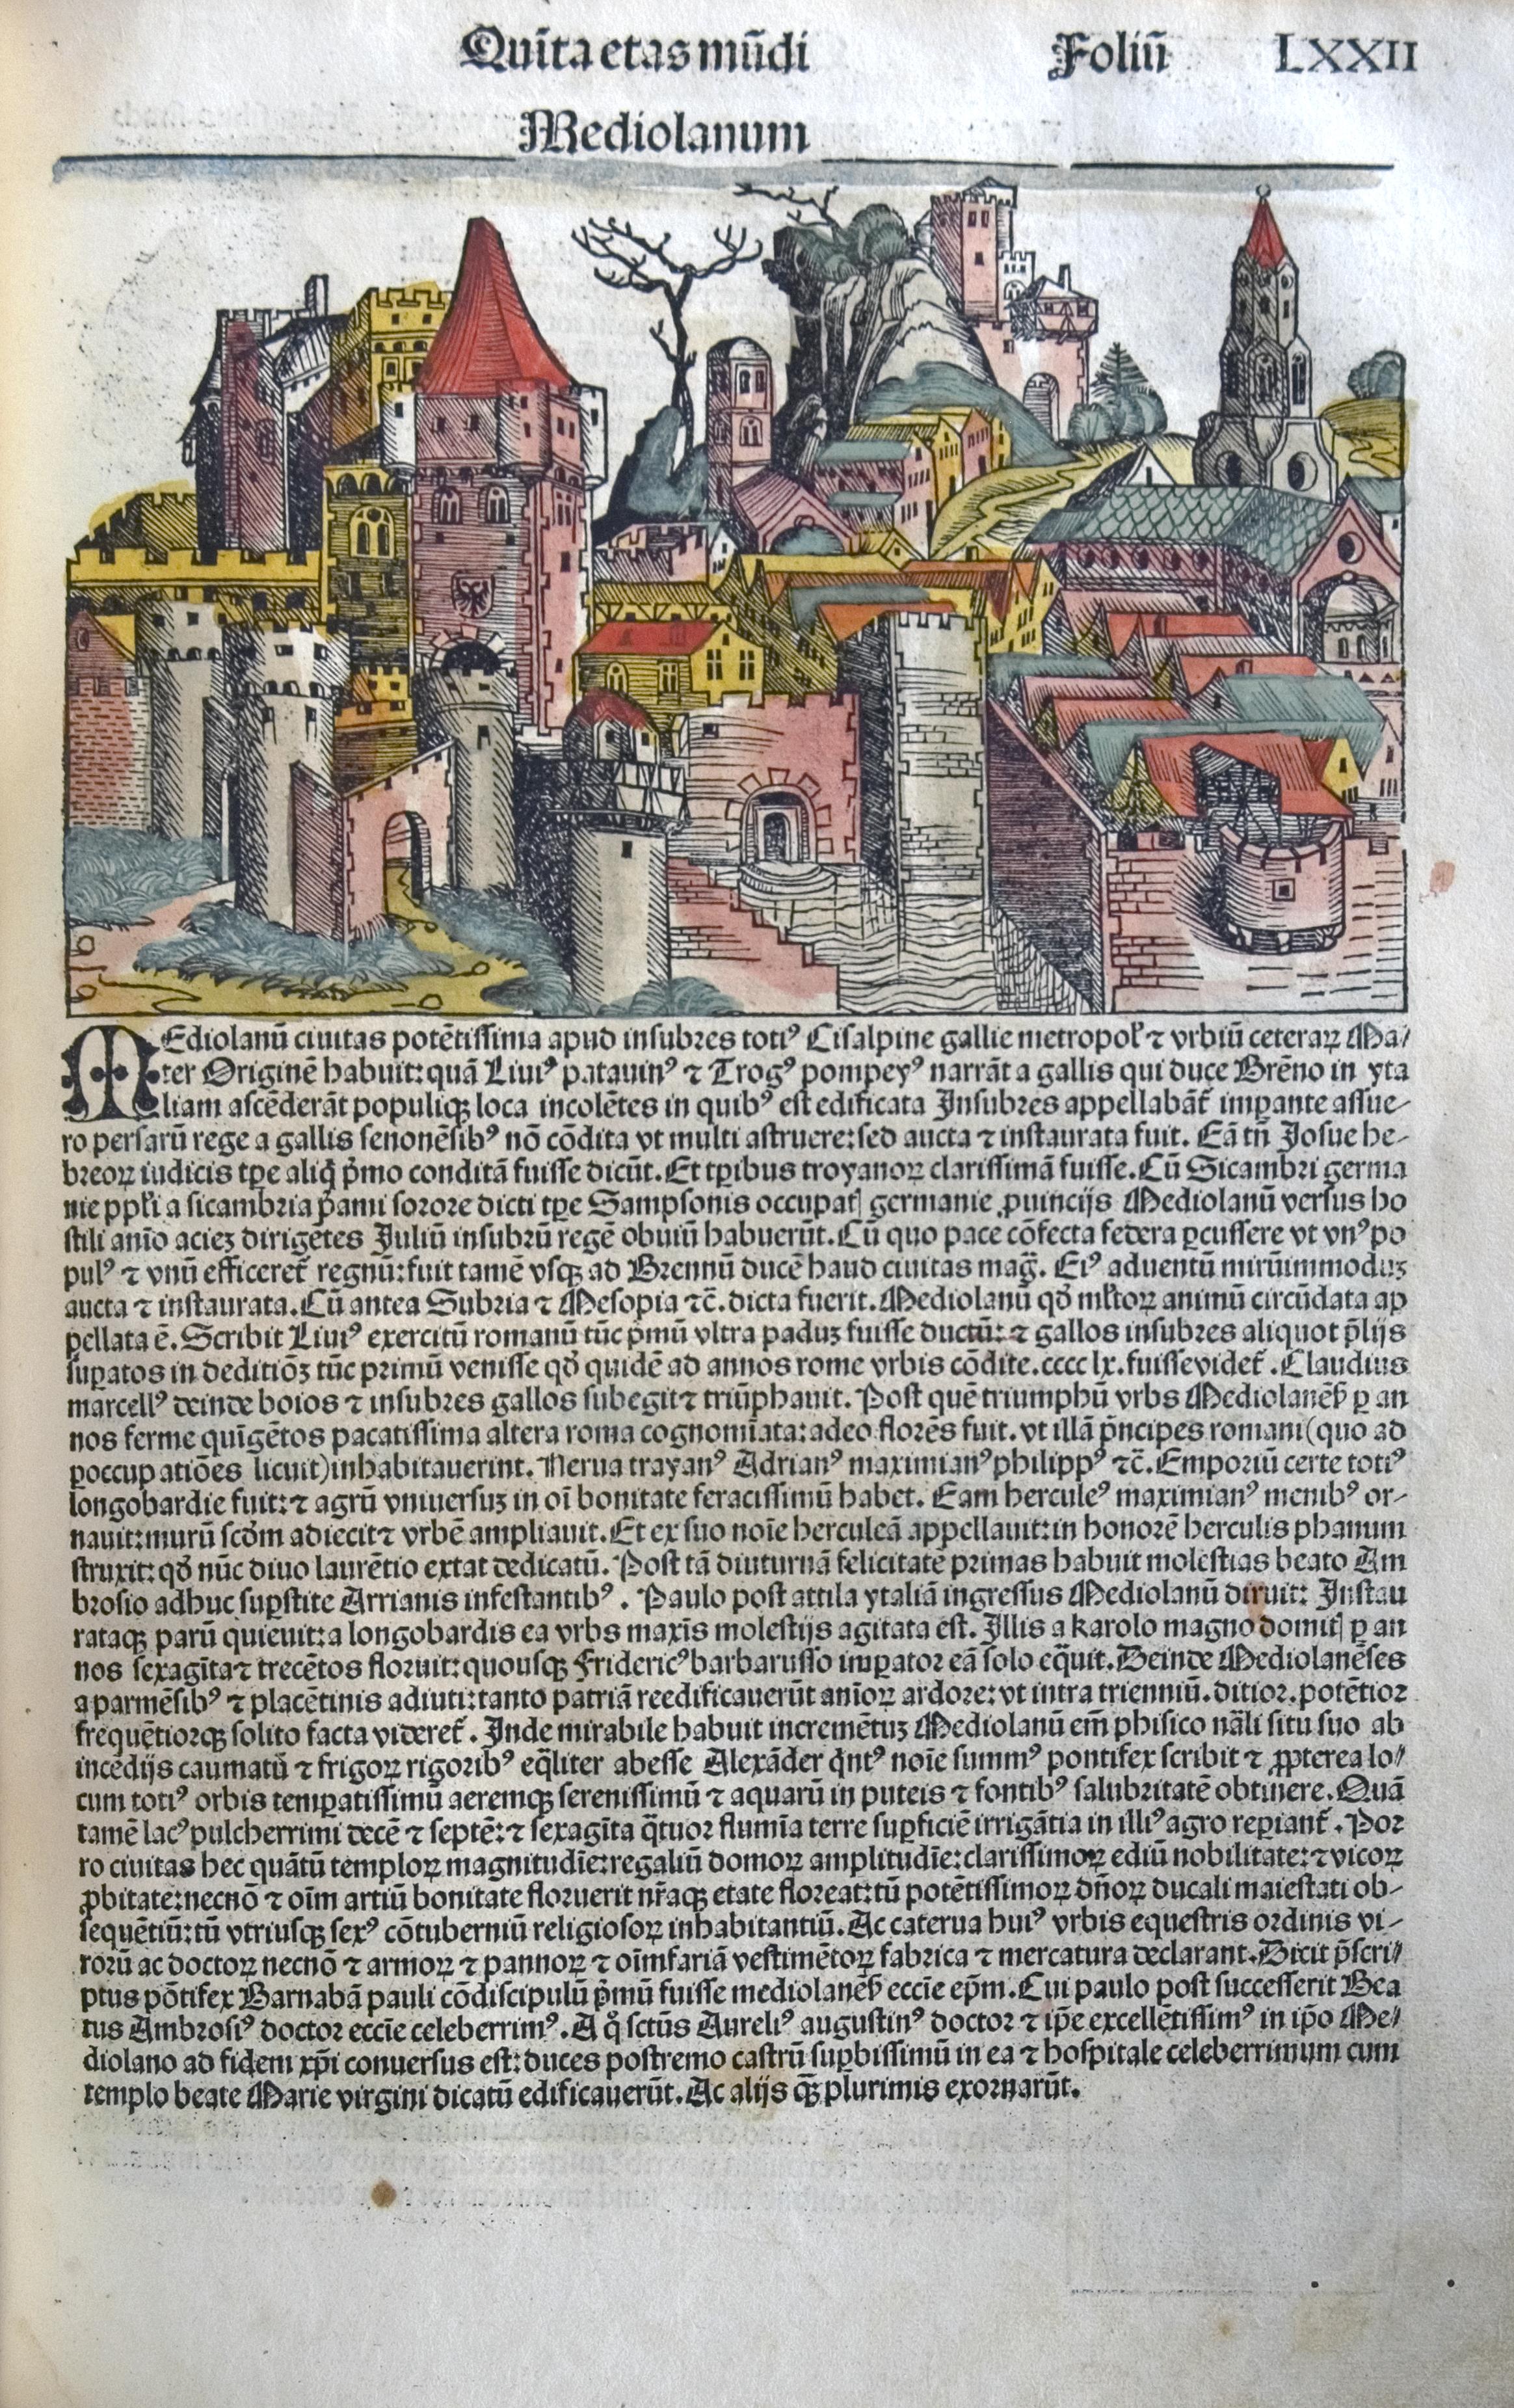 Quīta etas mūdi Foliū LXXII
Mediolanum
MEdiolanū ciuitas potētissima apud insubres totiꝰ Cisalpine gallie metropol' ⁊ vrbiū ceteraꝝ Ma/
ter Originē habuit: quā Liuiꝰ patauinꝰ ⁊ Trogꝰ pompeyꝰ narrāt a gallis qui duce Brēno in yta
liam ascēderāt populiqꝫ loca incolētes in quibꝰ est edificata Insubres appellabāt̄ imꝑante assue-
ro persarū rege a gallis senonēsibꝰ nō cōdita vt multi astruere: sed aucta ⁊ instaurata fuit. Eā tn̄ Josue he-
breoꝝ iudicis tꝑe aliq̄ p̄mo conditā fuisse dicūt. Et tꝑibus troyanoꝝ clarissimā fuisse. Cū Sicambri germa
nie ppl'i a sicambria p̄ami sorore dicti tꝑe Sampsonis occupatꝯ germanie ꝓuincijs Mediolanū versus ho
stili anīo acieꝫ dirigētes Juliū insubrū regē obuiū habuerūt. Cū quo pace cōfecta federa ꝑcussere vt vnꝰ po
pulꝰ ⁊ vnū efficeret̄ regnū: fuit tamē vsqꝫ ad Brennū ducē haud ciuitas mag̈. Eiꝰ aduentū mirūimmoduꝫ
aucta ⁊ instaurata. Cū antea Subria ⁊ Mesopia ⁊c̄. dicta fuerit. Mediolanū qd̄ ml'toꝝ animū circūdata ap
pellata ē. Scribit Liuiꝰ exercitū romanū tūc p̄mū vltra paduꝫ fuisse ductū: ⁊ gallos insubres aliquot p̄lijs
suꝑatos in deditiōꝫ tūc primū venisse qd̄ quidē ad annos rome vrbis cōdite. cccc lx. fuisse videt̄. Claudius
marcellꝰ deinde boios ⁊ insubres gallos subegit ⁊ triūphauit. Post quē triumphū vrbs Mediolanēs̄ ꝑ an
nos ferme quīgētos pacatissima altera roma cognomīata: adeo florēs fuit. vt illā p̄ncipes romani (quo ad
ꝑoccupatiōes licuit) inhabitauerint. Nerua trayanꝰ Adrianꝰ maximianꝰ philippꝰ ⁊c̄. Emporiū certe totiꝰ
longobardie fuit: ⁊ agrū vniuersuꝫ in oī bonitate feracissimū habet. Eam herculeꝰ maximianꝰ menibꝰ or-
nauit: murū scd̄m adiecit ⁊ vrbē ampliauit. Et ex suo noīe herculeā appellauit: in honorē herculis phanum
struxit: qd̄ nūc diuo laurētio extat dedicatū. Post tā diuturnā felicitatē primas habuit molestias beato Am
brosio adhuc suꝑstite Arrianis infestantibꝰ. Paulo post attila ytaliā ingressus Mediolanū diruit: Instau
rataqꝫ parū quieuit: a longobardis ea vrbs maxīs molestijs agitata est. Illis a karolo magno domitꝯ ꝑ an
nos sexagīta ⁊ trecētos floruit: quousqꝫ Fridericꝰ barbarusso imꝑator eā solo eq̈uit. Deinde Mediolanēses
a parmēsibꝰ ⁊ placētinis adiuti: tanto patriā reedificauerūt anīoꝝ ardore: vt intra trienniū. ditior. potētior
frequētiorqꝫ solito facta videret̄. Inde mirabile habuit incremētuꝫ Mediolanū em̄ phisico nāli situ suo ab
incēdijs caumatū ⁊ frigoꝝ rigoribꝰ eq̄liter abesse Alexāder q̄ntꝰ noīe summꝰ pontifex scribit ⁊ ꝓpterea lo/
cum totiꝰ orbis temꝑatissimū aeremqꝫ serenissimū ⁊ aquarū in puteis ⁊ fontibꝰ salubritatē obtinere. Quā
tamē lacꝰ pulcherrimi decē ⁊ septē: ⁊ sexagīta q̈tuor flumīa terre suꝑficiē irrigātia in illiꝰ agro reꝑiant̄. Por
ro ciuitas hec quātū temploꝝ magnitudīe: regaliū domoꝝ amplitudīe: clarissimoꝝ ediū nobilitate: ⁊ vicoꝝ
ꝓbitate: necnō ⁊ oīm artiū bonitate floruerit nr̄aqꝫ etate floreat: tū potētissimoꝝ dn̄oꝝ ducali maiestati ob-
sequētiū: tū vtriusqꝫ sexꝰ cōtuberniū religiosoꝝ inhabitantiū. Ac caterua huiꝰ vrbis equestris ordinis vi-
rorū ac doctoꝝ necnō ⁊ armoꝝ ⁊ pannoꝝ ⁊ oīmfariā vestimētoꝝ fabrica ⁊ mercatura declarant. Dicit p̄scri/
ptus pōtifex Barnabā pauli cōdiscipulū p̄mū fuisse mediolanēs̄ eccīe ep̄m. Cui paulo post successerit Bea
tus Ambrosiꝰ doctor eccīe celeberrimꝰ. A q̊ sctūs Aureliꝰ augustinꝰ doctor ⁊ ip̄e excellētissimꝰ in ip̄o Me/
diolano ad fidem xp̄i conuersus est: duces postremo castrū suꝑbissimū in ea ⁊ hospitale celeberrimum cum
templo beate Marie virgini dicatū edificauerūt. Ac alijs qꝫ̄ plurimis exornarūt.